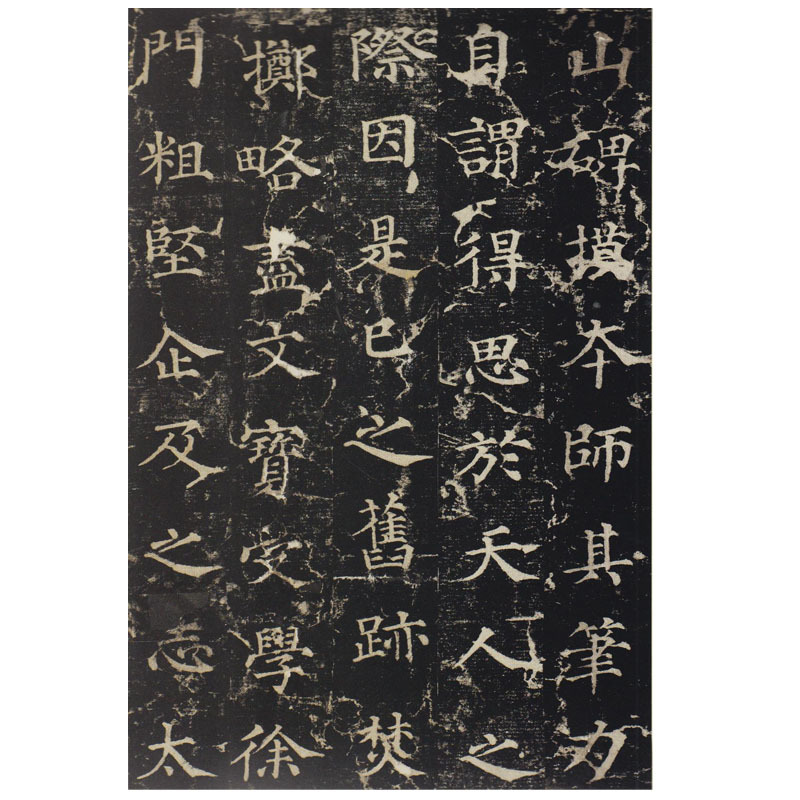 山碑摸本師其筆力
自謂得思於天人之
際因是已之舊跡焚
擲略盡文寶受學徐
門粗堅企及之志太